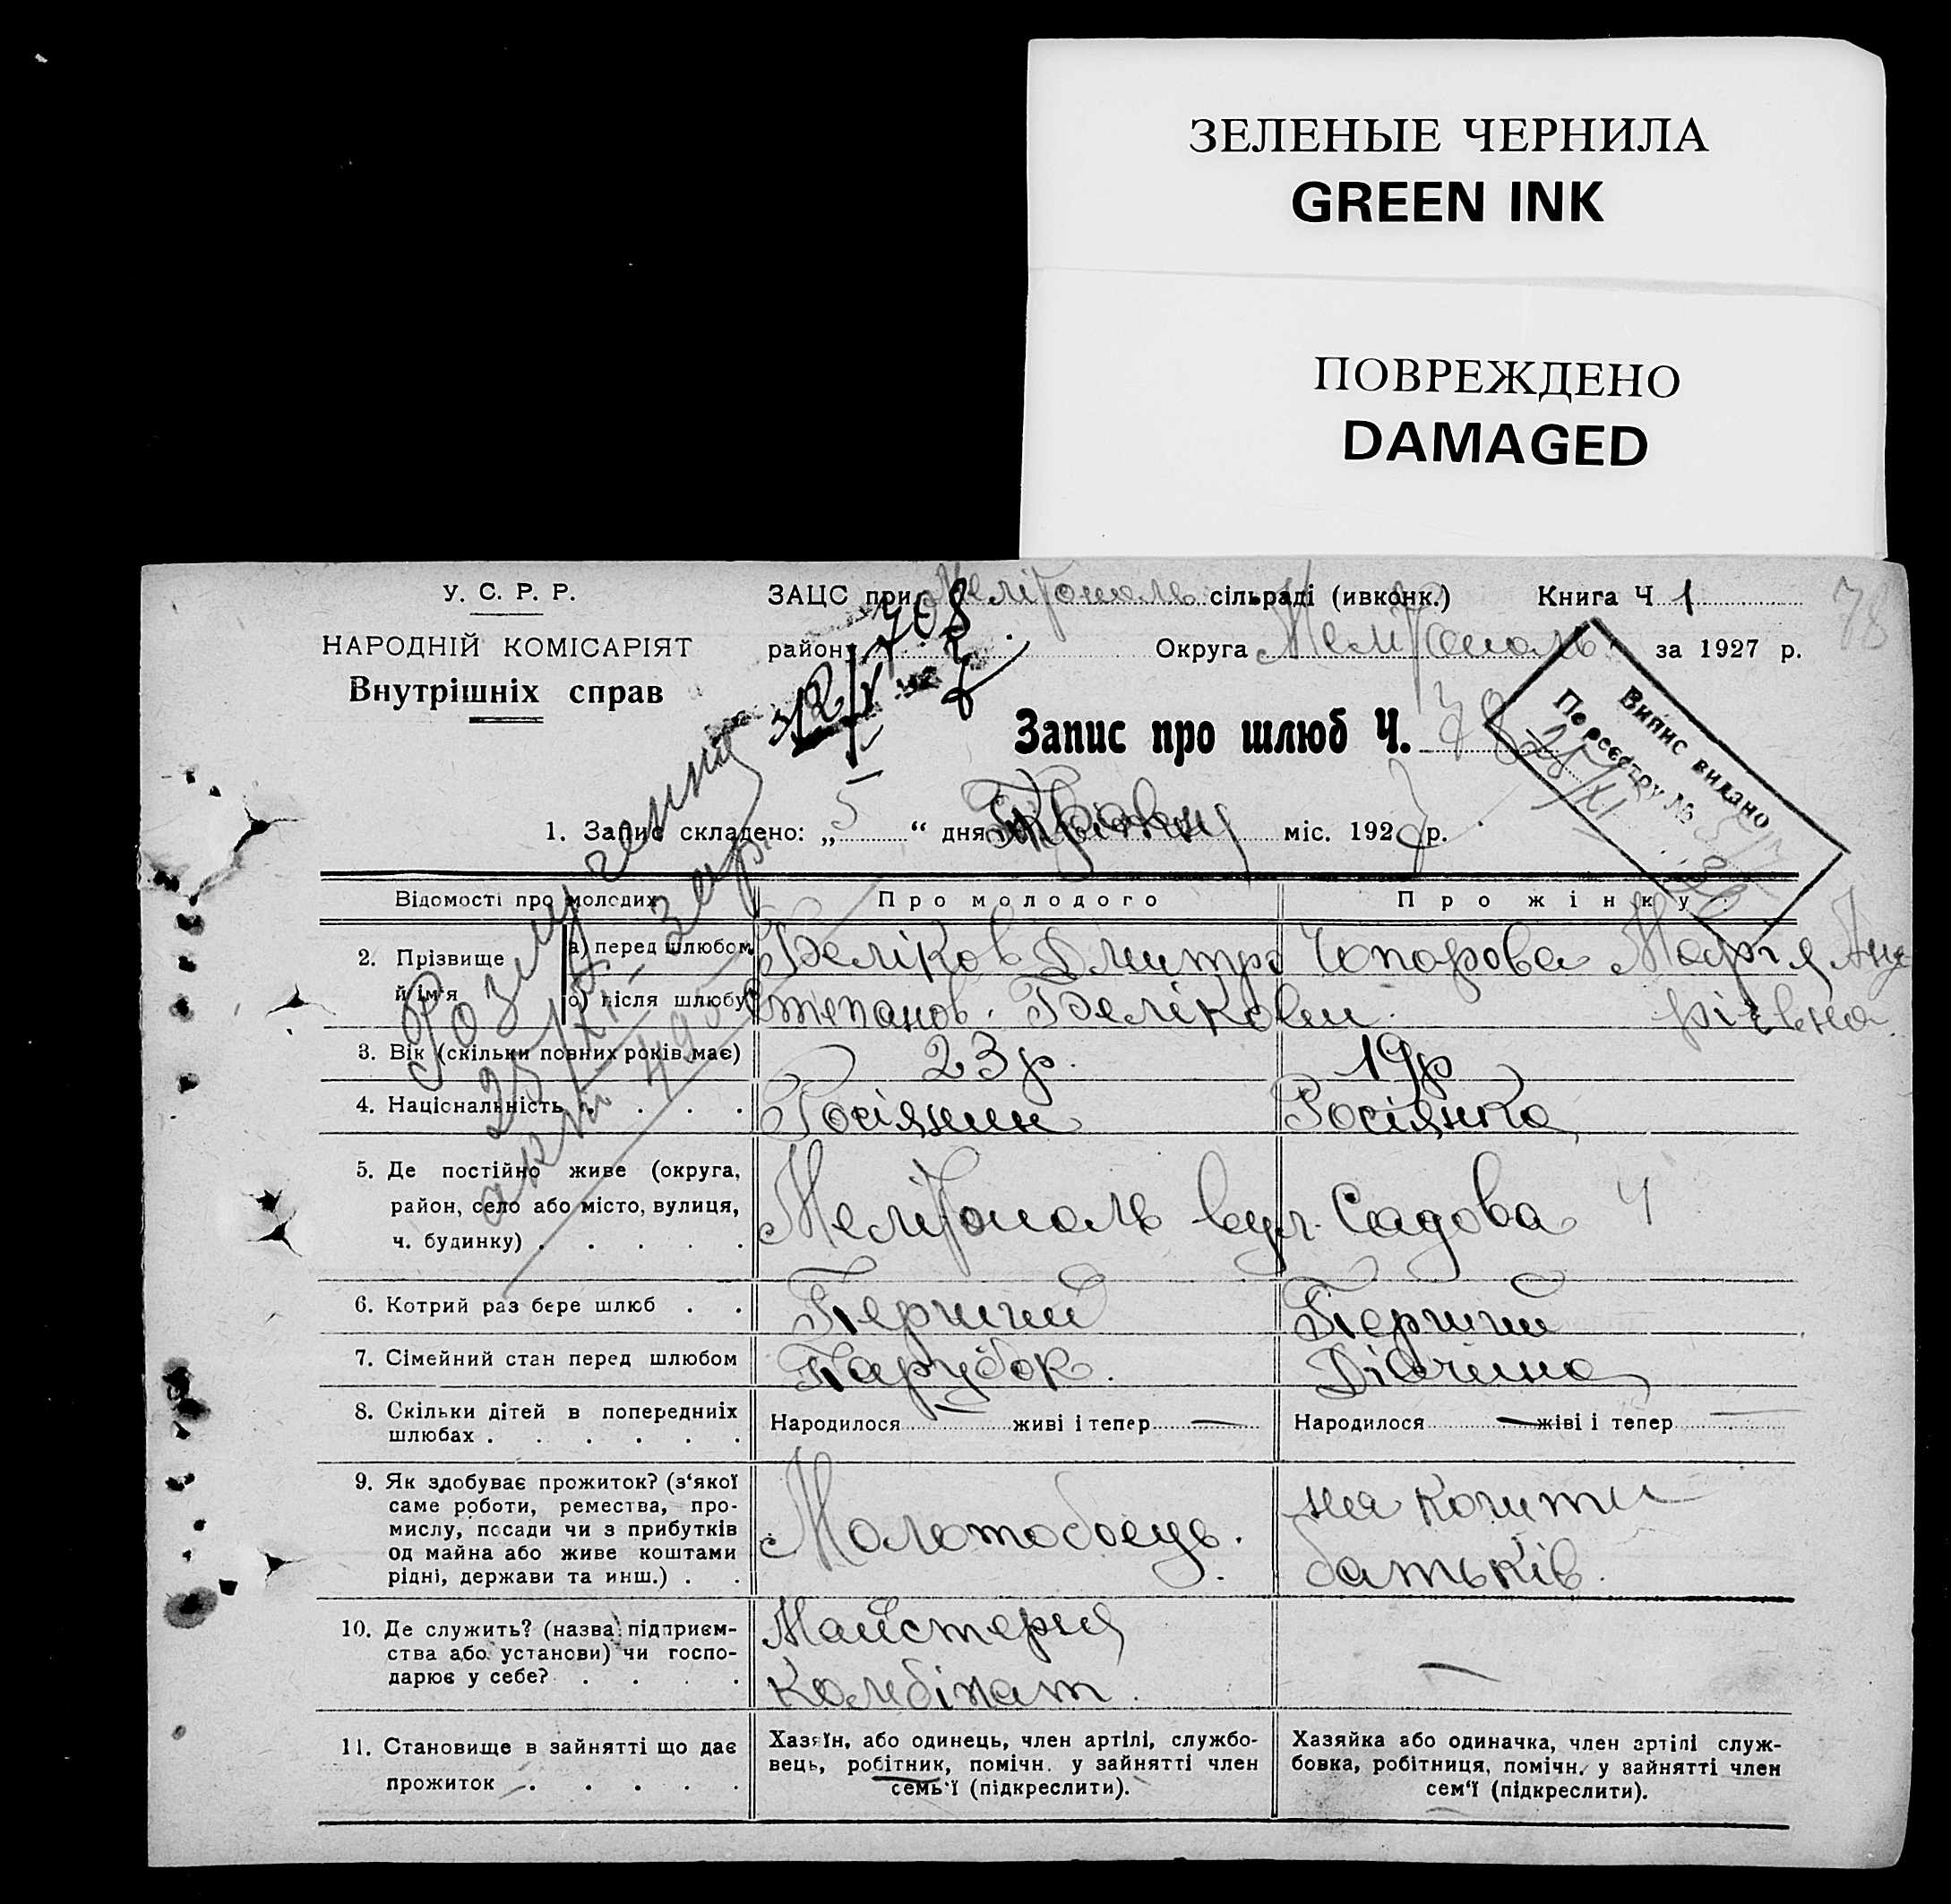 ЗЕЛЕНЫЕ ЧЕРНИЛА
GREEN INK
ПОВРЕЖДЕНО
DAMAGED
У. С. Р. Р.
НАРОДНІЙ КОМІСАРІЯТ
Внутрішніх справ
ЗАЦС при Мелітополь сільраді (ивконк.) Книга Ч 1
78
район Округа Мелітополь за 1927 р.
708
Запис про шлюб Ч. 78
Випис видано
Переєстру №
1. Запис складено: „ 5 “ дня Травня міс. 1927 р.
Розлучення
25/XI - зар.
акт 495
Відомості про молодих
Про молодого
Про жінку
2. Прізвище й ім'я
а) перед шлюбом Беліков Дмитро Чопорова Марія Анд
б) після шлюбу Степанов. Белікови. ріївна
3. Вік (скільки повних років має) 23 р. 19 р
4. Національність . . . . Росіянин Росіянка
5. Де постійно живе (округа,
район, село або місто, вулиця,
ч. будинку) . . . . .
Мелітополь вул. Садова 4
6. Котрий раз бере шлюб . . Перший Перший
7. Сімейний стан перед шлюбом Парубок. Дівчина
8. Скільки дітей в попередниіх
шлюбах . . . . . .
Народилося — живі і тепер — Народилося — жіві і тепер —
9. Як здобуває прожиток? (з'якої
саме роботи, ремества, про-
мислу, посади чи з прибутків
од майна або живе коштами
рідні, держави та инш.) . .
Молотобоець.
на кошти
батьків.
10. Де служить? (назва підприєм-
ства або установи) чи госпо-
дарює у себе? . . . .
Майстерня
Комбінат.
—
11. Становище в зайнятті що дає
прожиток . . . . .
Хазяїн, або одинець, член артілі, службо-
вець, робітник, помічн. у зайнятті член
семь'ї (підкреслити).
Хазяйка або одиначка, член артілі служ-
бовка, робітниця, помічн. у зайнятті член
сем'ї (підкреслити).